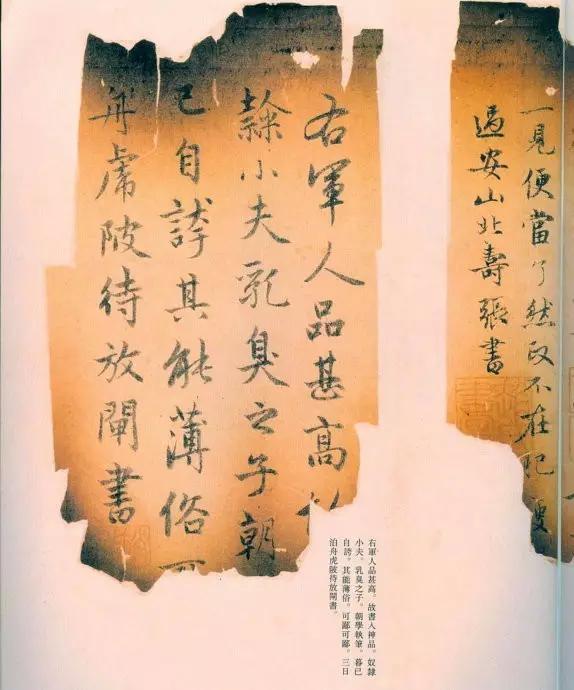 一見便當了然政不在肥
過安山北壽張書
右軍人品甚高
隸小夫乳臭之子朝
已自誇其能薄俗
舟虎陂待放閘書
右軍人品甚高。故書入神品。奴隸
小夫。乳臭之子。朝學執筆。暮已
自誇。其能薄俗。可鄙可鄙。三日
泊舟虎陂待放閘書。